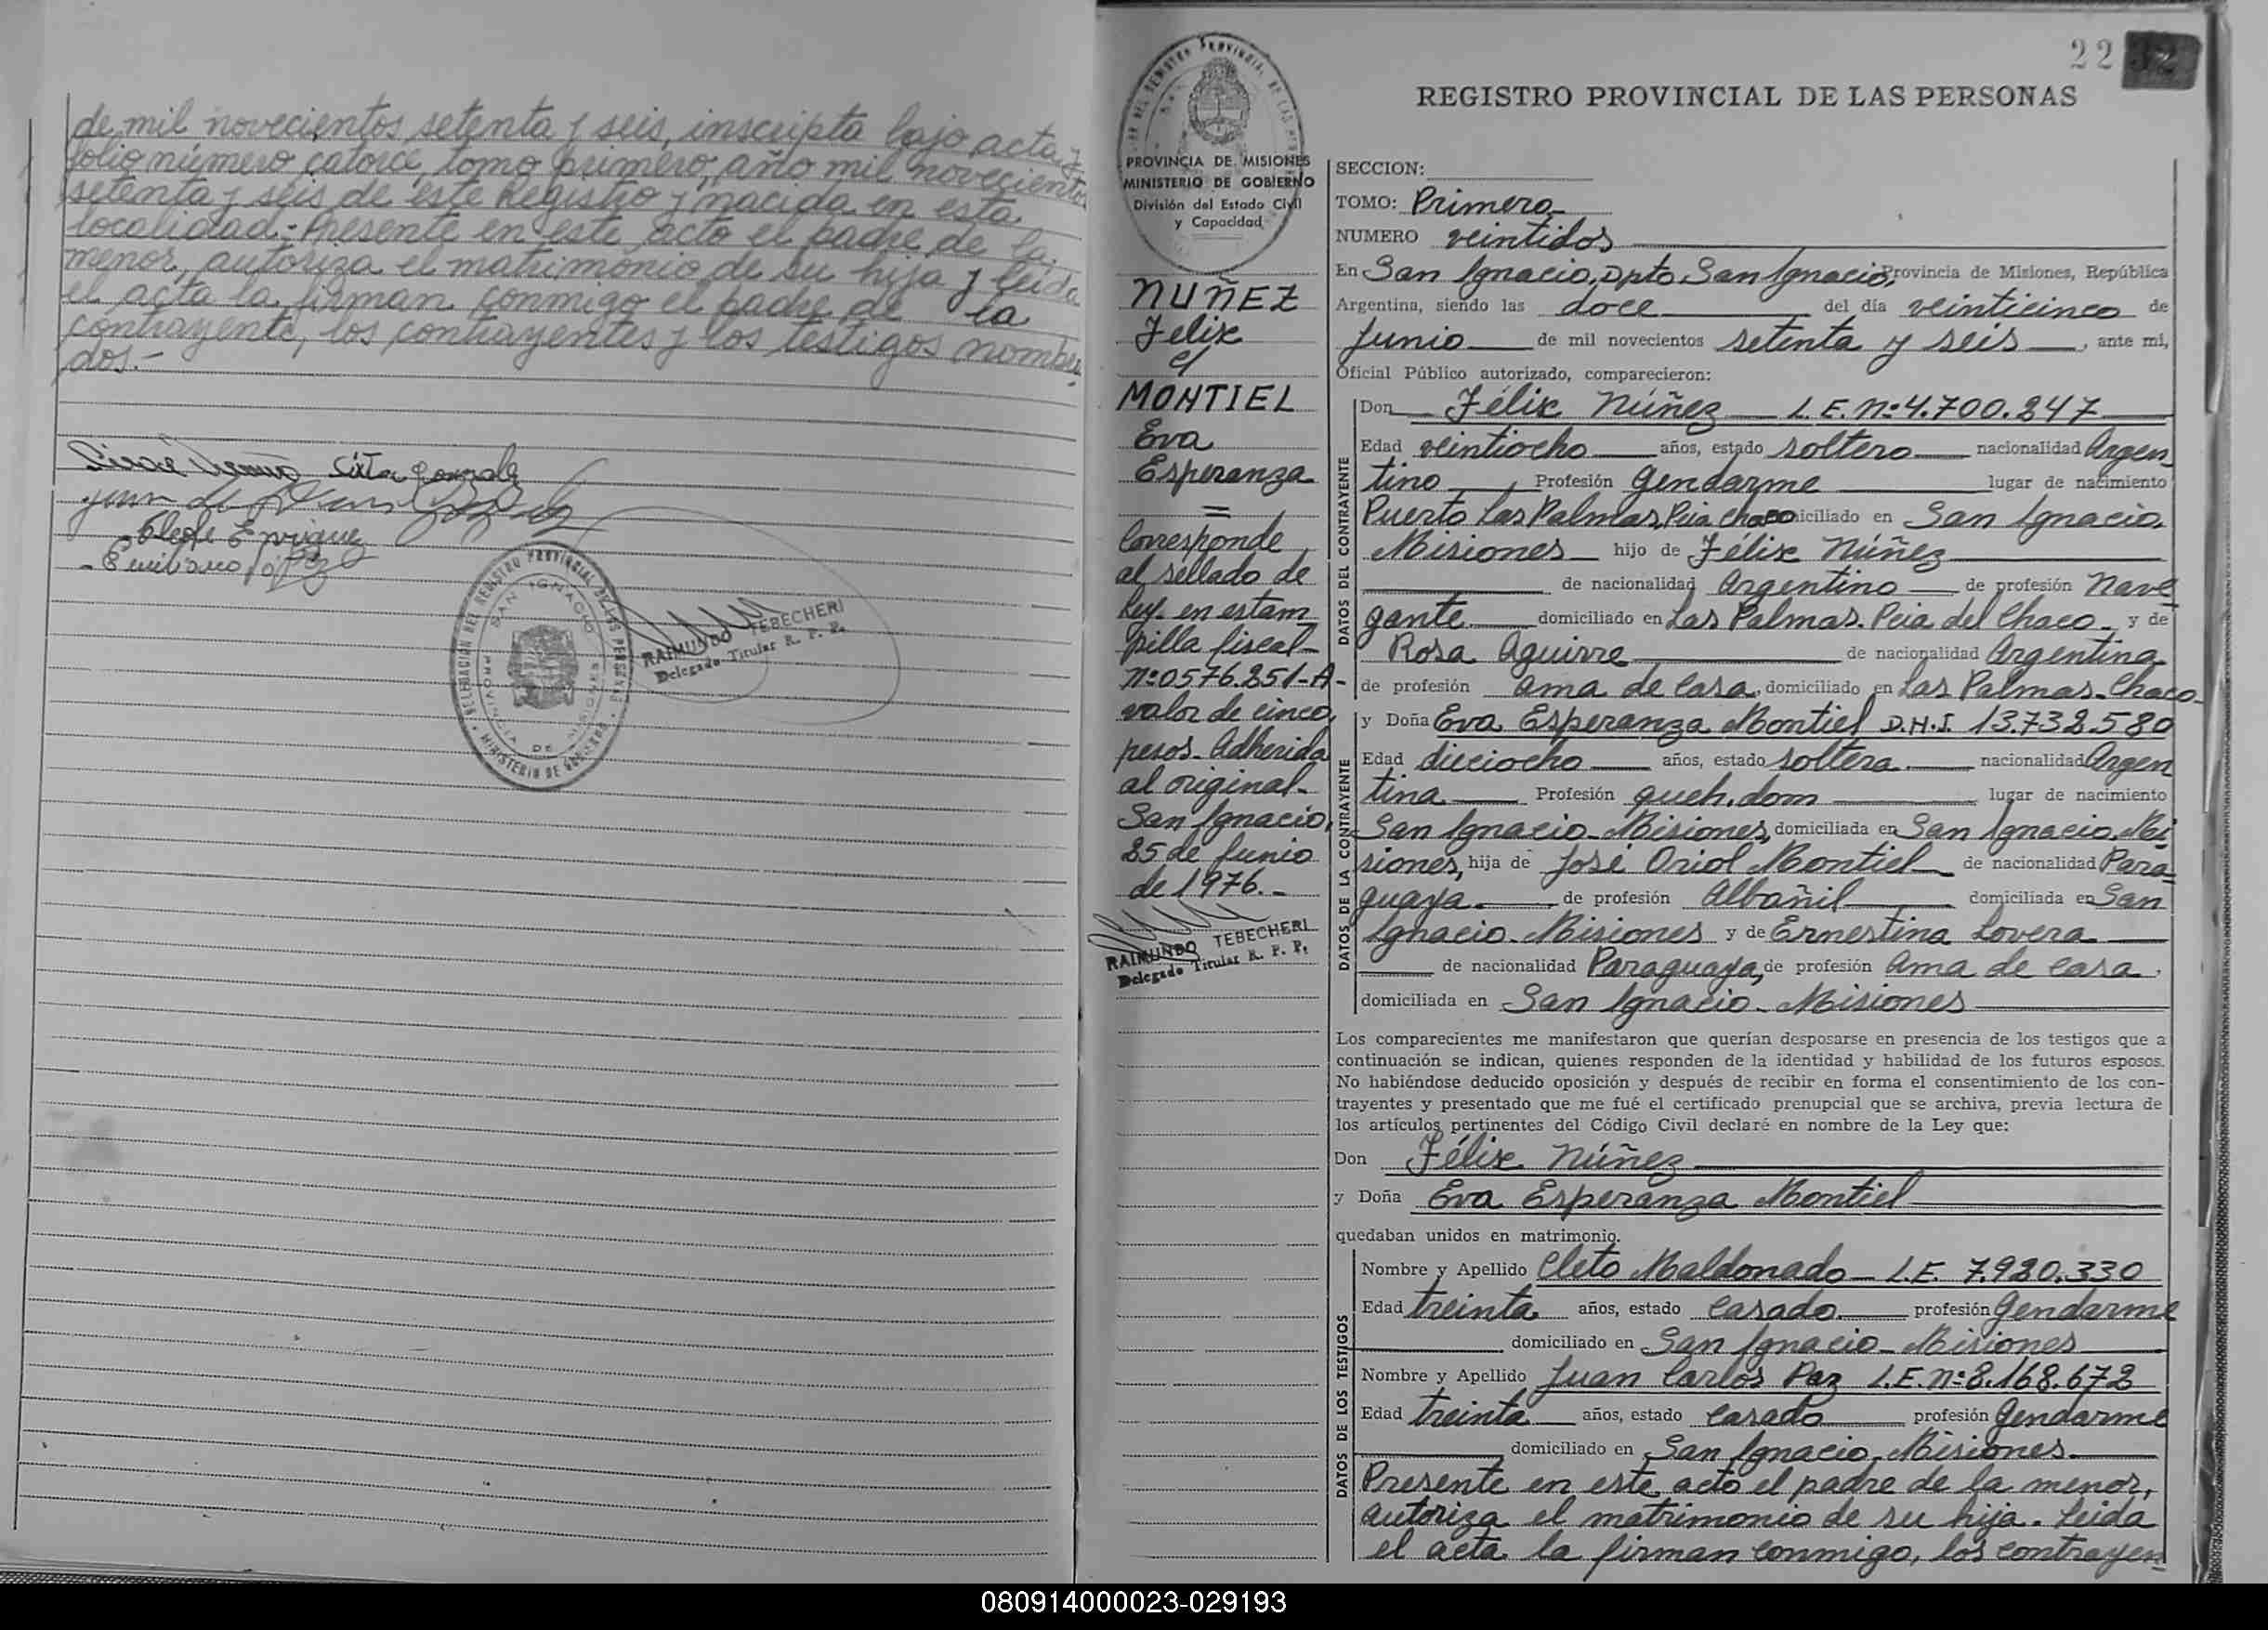 de mil novecientos setenta y seis, inscripta bajo acta y
folio número catorce, tomo primero, año mil novecientos
setenta y seis de este Registro y nacida en esta
localidad.- Presente en este acto el padre de la
menor, autoriza el matrimonio de su hija y leida
el acta la firman conmigo el padre de la
contrayente, los contrayentes y los testigos nombra
dos.-
Sixta Gonzalez
RAIMUNDO TEBECHERI
Delegado Titular R. P. P.
DELEGACION DEL REGISTRO PROVINCIAL DE LAS PERSONAS
MINISTERIO DE GOBIERNO
SAN IGNACIO
PROVINCIA DE MISIONES
22
REGISTRO PROVINCIAL DE LAS PERSONAS
PROVINCIA DE MISIONES
MINISTERIO DE GOBIERNO
División del Estado Civil
y Capacidad
NUÑEZ
Felix
c/
MONTIEL
Eva
Esperanza
=
Corresponde
al sellado de
Ley. en estam
pilla fiscal-
Nº 0576.251-A-
valor de cinco
pesos. Adherida
al original-
San Ignacio,
25 de Junio
de 1976.-
RAIMUNDO TEBECHERI
Delegado Titular R. P. P.
SECCION:
TOMO: Primero
NUMERO veintidos
En San Ignacio, Dpto San Ignacio, Provincia de Misiones, República
Argentina, siendo las doce del día veinticinco de
Junio de mil novecientos setenta y seis, ante mi,
Oficial Público autorizado, comparecieron:
DATOS DEL CONTRAYENTE
Don Félix Núñez L.E. Nº 4.700.247
Edad veintiocho años, estado soltero nacionalidad Argen
tino Profesión Gendarme lugar de nacimiento
Puerto Las Palmas, Pcia Chaco domiciliado en San Ignacio,
Misiones hijo de Félix Núñez
de nacionalidad Argentino de profesión Nave
gante domiciliado en Las Palmas. Pcia del Chaco- y de
Rosa Aguirre de nacionalidad Argentina
de profesión Ama de Casa, domiciliado en Las Palmas-Chaco-
DATOS DE LA CONTRAYENTE
y Doña Eva Esperanza Montiel D.N.I. 13.732.580
Edad dieciocho años, estado soltera nacionalidad Argen
tina Profesión queh. dom lugar de nacimiento
San Ignacio-Misiones, domiciliada en San Ignacio, Mi
siones, hija de José Oriol Montiel de nacionalidad Para=
guaya. de profesión Albañil domiciliada en San
Ignacio. Misiones y de Ernestina Lovera
de nacionalidad Paraguaya, de profesión Ama de Casa,
domiciliada en San Ignacio-Misiones
Los comparecientes me manifestaron que querían desposarse en presencia de los testigos que a
continuación se indican, quienes responden de la identidad y habilidad de los futuros esposos.
No habiéndose deducido oposición y después de recibir en forma el consentimiento de los con-
trayentes y presentado que me fué el certificado prenupcial que se archiva, previa lectura de
los artículos pertinentes del Código Civil declaré en nombre de la Ley que:
Don Félix Núñez
y Doña Eva Esperanza Montiel
quedaban unidos en matrimonio.
DATOS DE LOS TESTIGOS
Nombre y Apellido Cleto Maldonado- L.E. 7.920.330
Edad treinta años, estado casado. profesión Gendarme
domiciliado en San Ignacio-Misiones
Nombre y Apellido Juan Carlos Paz L.E. Nº 8.168.672
Edad treinta años, estado casado profesión Gendarme
domiciliado en San Ignacio, Misiones.
Presente en este acto el padre de la menor,
autoriza el matrimonio de su hija. Leida
el acta la firman conmigo, los contrayen=
080914000023-029193